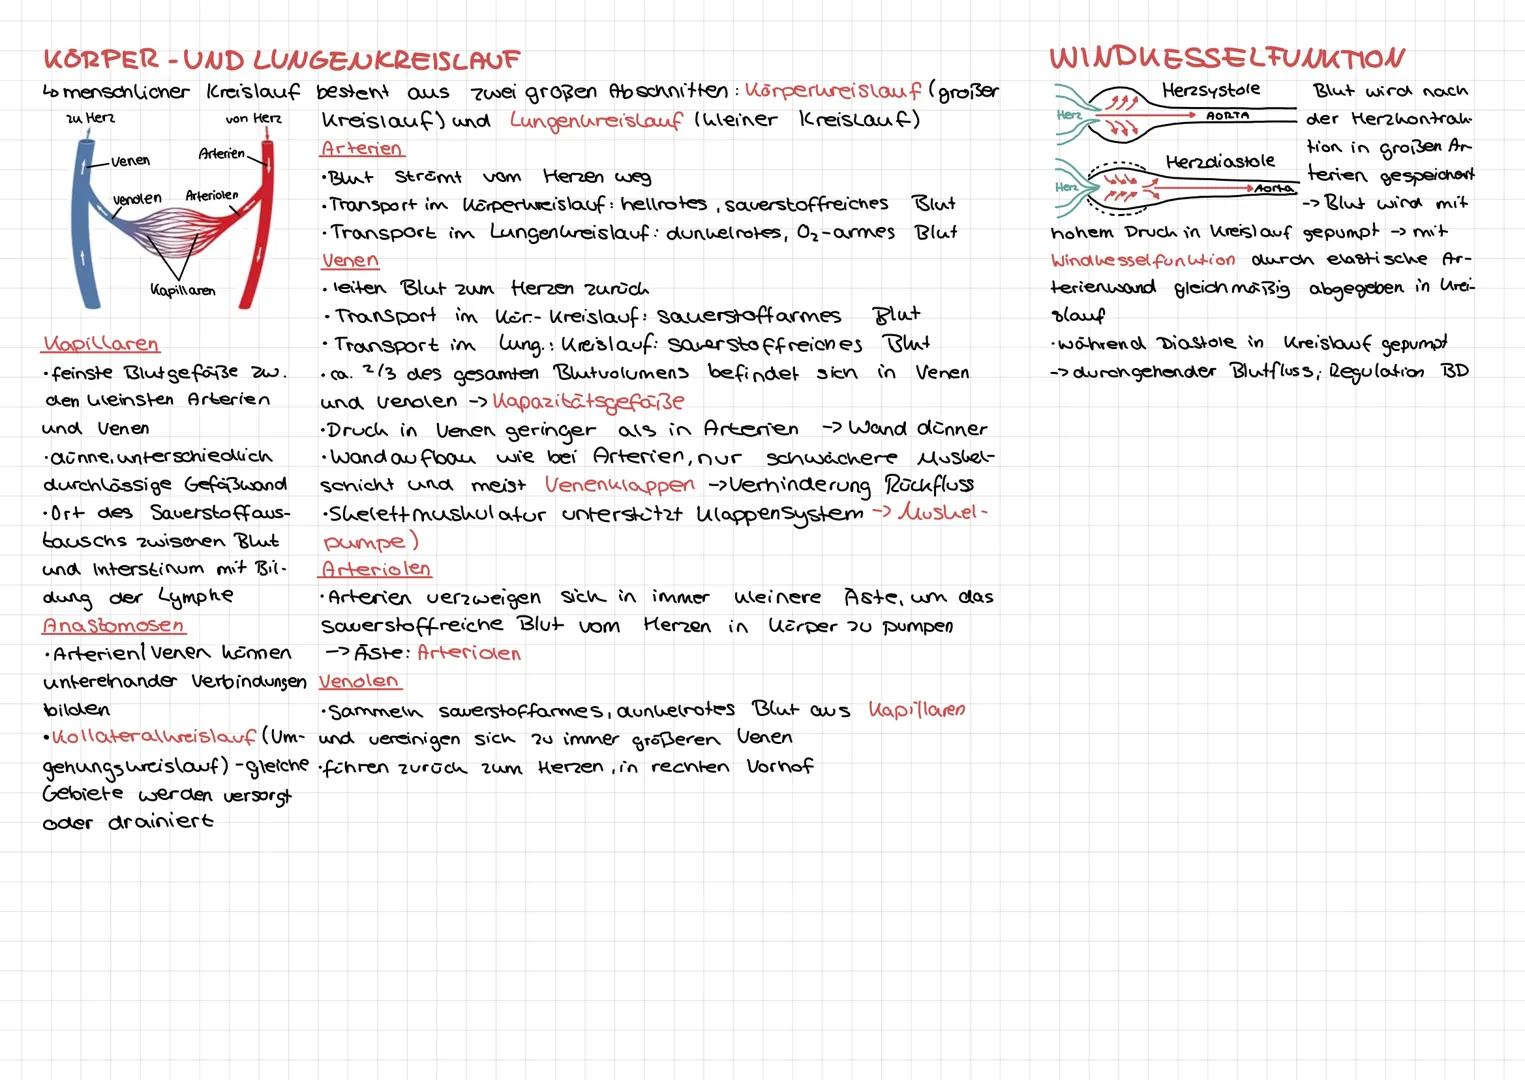 KÖRPER - UND LUNGENKREISLAUF
↳ menschlicher Kreislauf besteht aus zwei großen Abschnitten: Körperkreislauf (großer
Kreislauf) und Lungenkreislauf (kleiner Kreislauf)
zu Herz
von Herz
Venen
Arterien
Venolen
Arteriolen
Kapillaren
Kapillaren
•feinste Blutgefäße zw.
den kleinsten Arterien
und Venen
•dünne, unterschiedlich
durchlässige Gefäßwand
•Ort des Sauerstoffaus-
tauschs zwischen Blut
und Interstinum mit Bil-
dung der Lymphe
Anastomosen
•Arterien/Venen können
untereinander Verbindungen
bilden
•Kollateralkreislauf (Um-
gehungskreislauf) -gleiche
Gebiete werden versorgt
oder drainiert
Arterien
•Blut strömt vom Herzen weg
•Transport im Körperkreislauf: hellrotes, sauerstoffreiches Blut
•Transport im Lungenkreislauf: dunkelrotes, O₂-armes Blut
Venen
• leiten Blut zum Herzen zurück
•Transport im Kör.- Kreislauf: sauerstoffarmes Blut
•Transport im Lung.: Kreislauf: sauerstoffreiches Blut
•ca. 2/3 des gesamten Blutvolumens befindet sich in Venen
und Venolen -> Kapazitätsgefäße
•Druck in Venen geringer als in Arterien -> Wand dünner
•Wandaufbau wie bei Arterien, nur schwächere Muskel-
schicht und meist Venenklappen ->Verhinderung Rückfluss
•Skelettmuskulatur unterstützt Klappensystem -> Muskel-
pumpe)
Arteriolen
•Arterien verzweigen sich in immer kleinere Äste, um das
sauerstoffreiche Blut vom Herzen in Körper zu pumpen
-> Äste: Arteriolen
Venolen
•Sammeln sauerstoffarmes, dunkelrotes Blut aus Kapillaren
und vereinigen sich zu immer größeren Venen
•führen zurück zum Herzen, in rechten Vorhof
WINDKESSELFUNKTION
Herzsystole
Herz
AORTA
Herzdiastole
Herz
Aorta
Blut wird nach
der Herzkontrak-
tion in großen Ar-
terien gespeichert
-> Blut wird mit
hohem Druck in Kreislauf gepumpt -> mit
Windkesselfunktion durch elastische Ar-
terienwand gleichmäßig abgegeben in Krei-
slauf
•während Diastole in Kreislauf gepumpt
-> durchgehender Blutfluss, Regulation BD